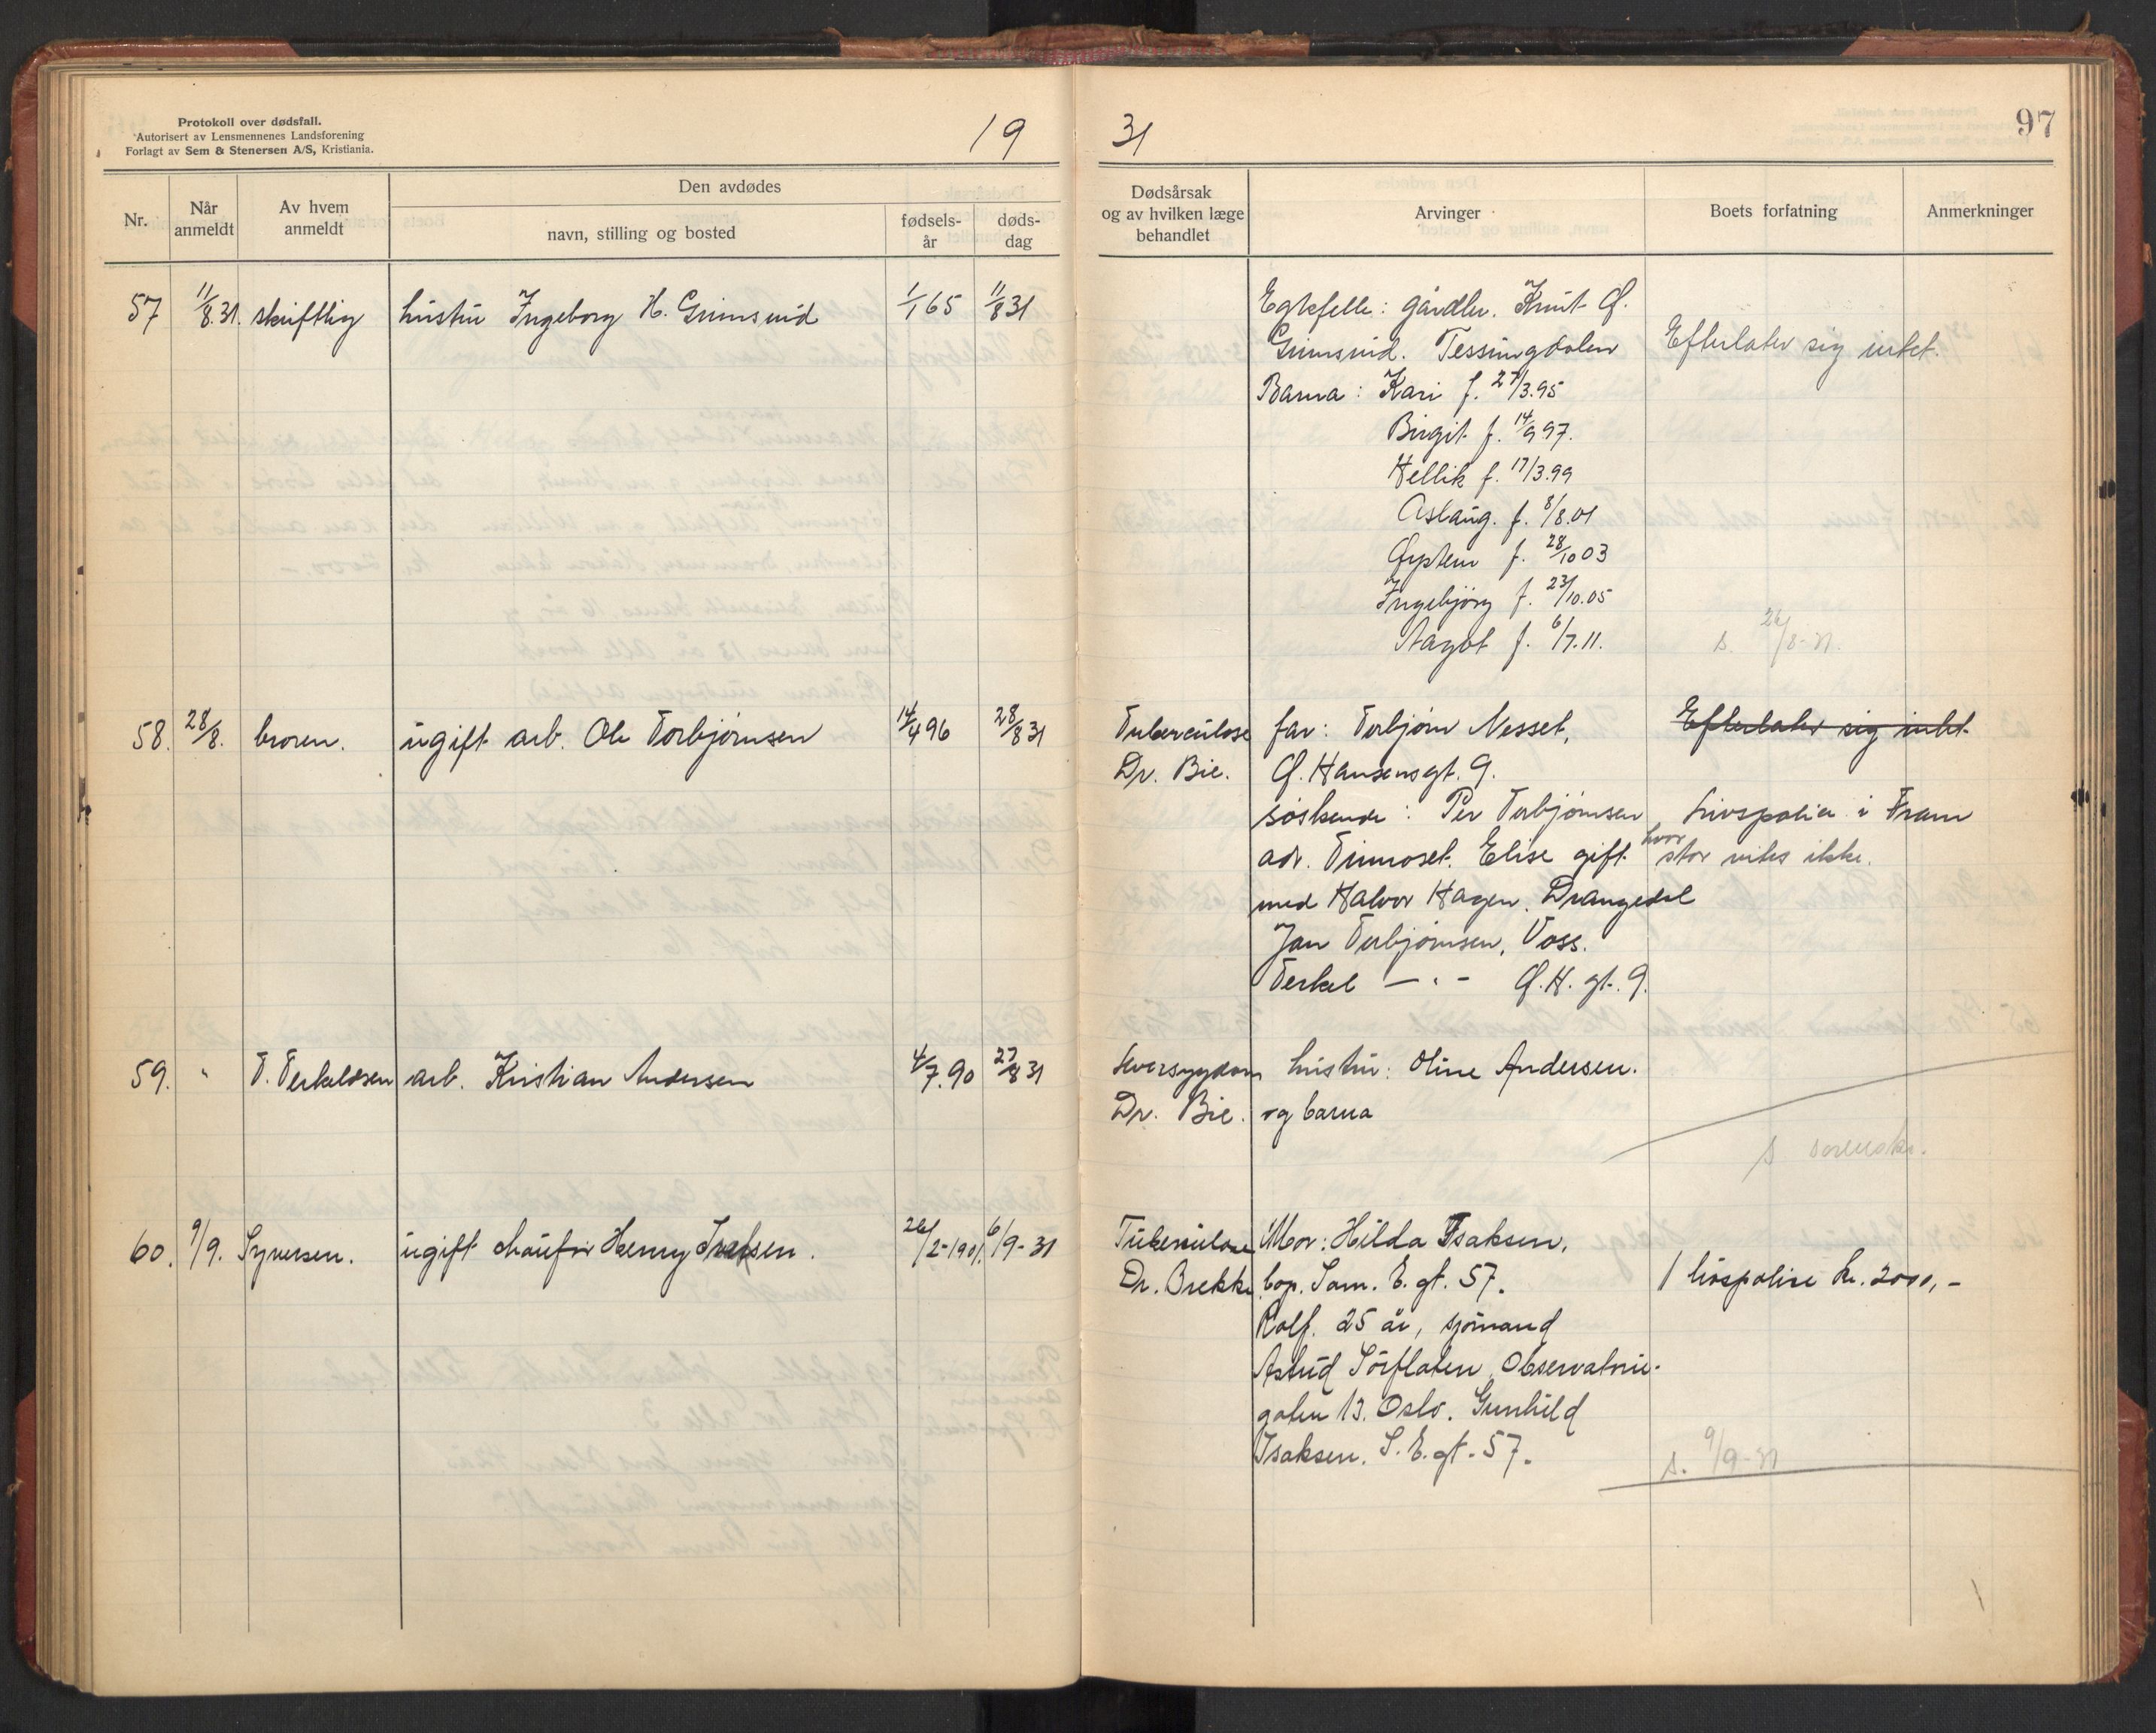 Protokoll over dødsfall.
Autorisert av Lensmennenes Landsforening
Forlagt av Sem & Stenersen A/S, Kristiania.
19
31
97
Nr.
Når anmeldt
Av hvem anmeldt
Den avdødes
navn, stilling og bosted
fødsels-år
døds-dag
Dødsårsak og av hvilken læge behandlet
Arvinger
Boets forfatning
Anmerkninger
57 11/8.31. skriftlig hustru Ingeborg H. Grimsrud 1/1 65 11/8 31
Egtefelle: gårdbr. Knut O.
Grimsrud. Tessungdalen
Efterlater sig intet.
Barna: Kari f. 27/3.95
Birgit f. 14/9 97.
Hellik f. 17/3.99
Aslaug. f. 8/8.01
Øystein f. 28/10 03
Ingebjörg f. 23/10.05
Aagot f. 6/7.11.
s. 26/8-31.
58. 28/8. broren. ugift arb. Ole Torbjörnsen 14/4 96 28/8 31
Tuberculose far: Torbjörn Nesset, Efterlater sig intet
Dr. Bie. O. Hansensgt. 9.
söskende: Per Torbjörnsen Livspolice i Fram
adr. Tinnoset. Elise gift hvor stor vites ikke.
med Halvor Hagen. Drangedal
Jan Torbjörnsen, Voss.
Terkel — " — O. H. gt. 9.
59. " T. Terkelsen arb. Kristian Andersen 4/7.90 27/8 31
Leversygdom hustru: Oline Andersen.
Dr. Bie. og barna
s sorenskr.
60. 9/9. Syversen. ugift chauför Henry Isaksen. 26/2-1901. 6/9-31
Tuberculose Mor: Hilda Isaksen,
Dr. Brekke bop. Sam. E. gt. 57. 1 livspolise kr. 2000,-
Rolf. 25 år, sjömand
Astrid Sörflaten, Observatorie-
gaten 13. Oslo. Gunhild
Isaksen. S. E. gt. 57.
s. 9/9-31